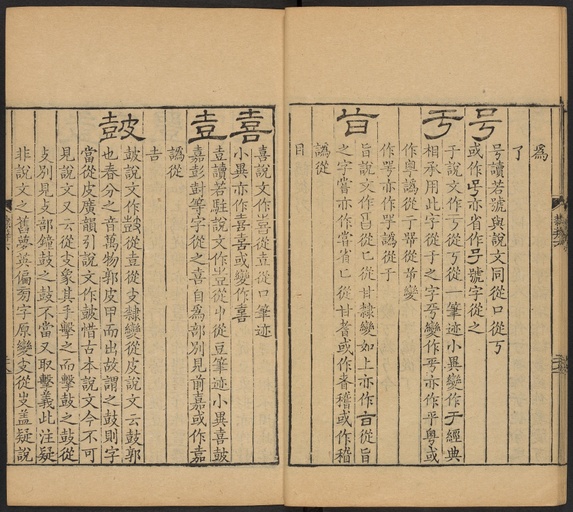 為
了
号 号讀若號與說文同從口從丂
或作𠯳亦省作子號字從之
亏 于說文作亏從丂從一筆迹小異變作于經典
相承用此字從于之字亏變作丐亦作平粤或
作粤譌從丁雩從𦬒變
作咢亦作𠷎譌從于
旨 旨說文作𣅌從匕從甘隸變如上亦作㫖從旨
之字嘗亦作甞省匕從甘耆或作𦒿稽或作𥡴
譌從
目
喜 喜說文作喜從壴從口筆迹
小異亦作憙喜或變作喜
壴 壴讀若駐說文作壴從屮從豆筆迹小異喜鼓
嘉彭尌等字從之喜自為部別見前嘉或作嘉
譌從
𠮷
皷 皷說文作鼓從壴從支隸變從皮說文云鼓郭
也春分之音萬物郭皮甲而出故謂之鼓則字
當從皮廣韻引說文作皷惜古本說文今不可
見說文又云從支象其手擊之而擊鼓之鼓從
攴別見攴部鐘鼓之鼓不當又取擊義此注疑
非說文之舊夢英偏旁字原變支從㞢蓋疑說